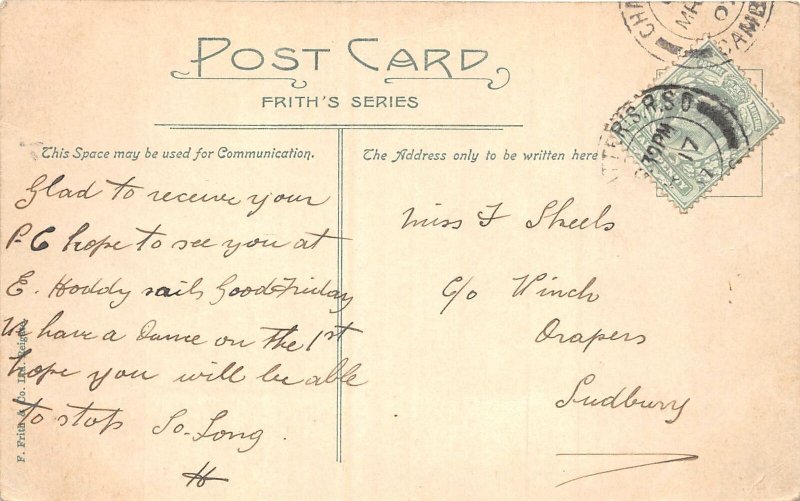 POST CARD
FRITH'S SERIES
This Space may be used for Communication.
The Address only to be written here
Glad to receive your
P-C hope to see you at
E. Hoddy sails Good Friday
We have a Dance on the 1st
hope you will be able
to stop So-Long.
H
Miss F Skeels
c/o Winch
Drapers
Sudbury
F. Frith & Co. Ltd. Reigate
CAMB
S.R.S.O
30PM
17